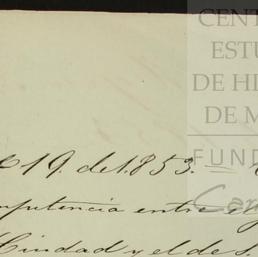 CENT
ESTU
DE HI
DE M
FUND
Ca
19. de 1.853. —
mpetencia entre
Ciudad y el de S.